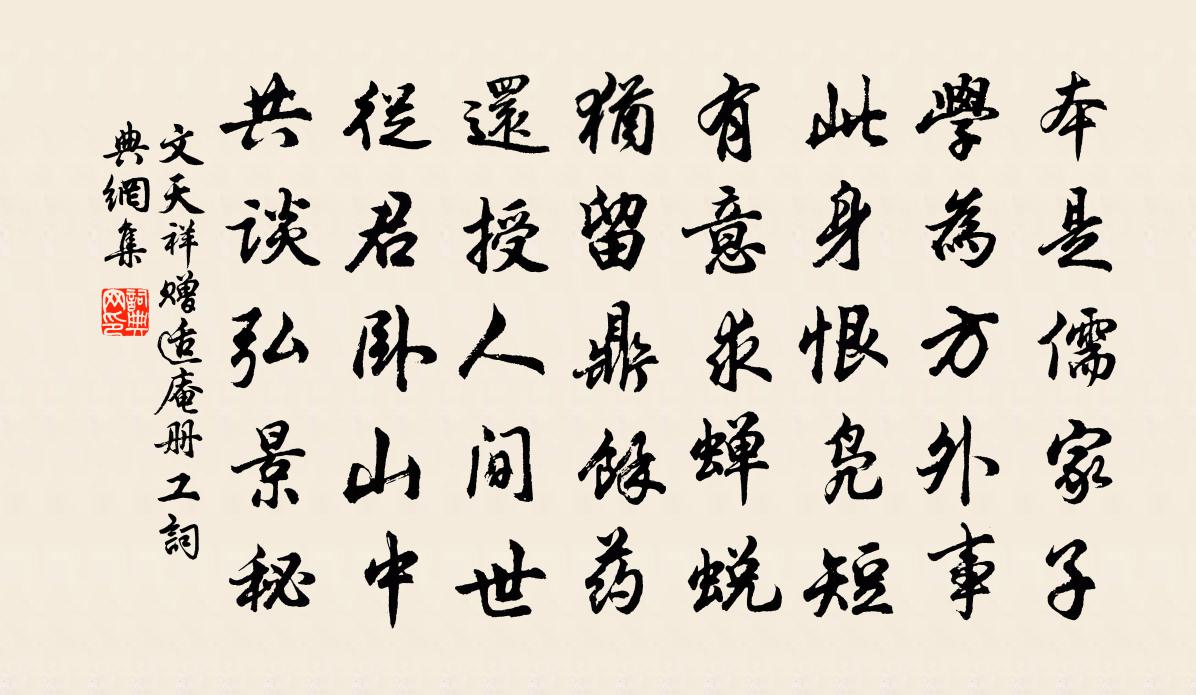 本是儒家子
學為方外事
此身恨凫短
有意求蝉蜕
猶留鼎餘药
還授人间世
從君卧山中
共谈弘景秘
文天祥赠适庵册工詞
典網集
詞典
网印